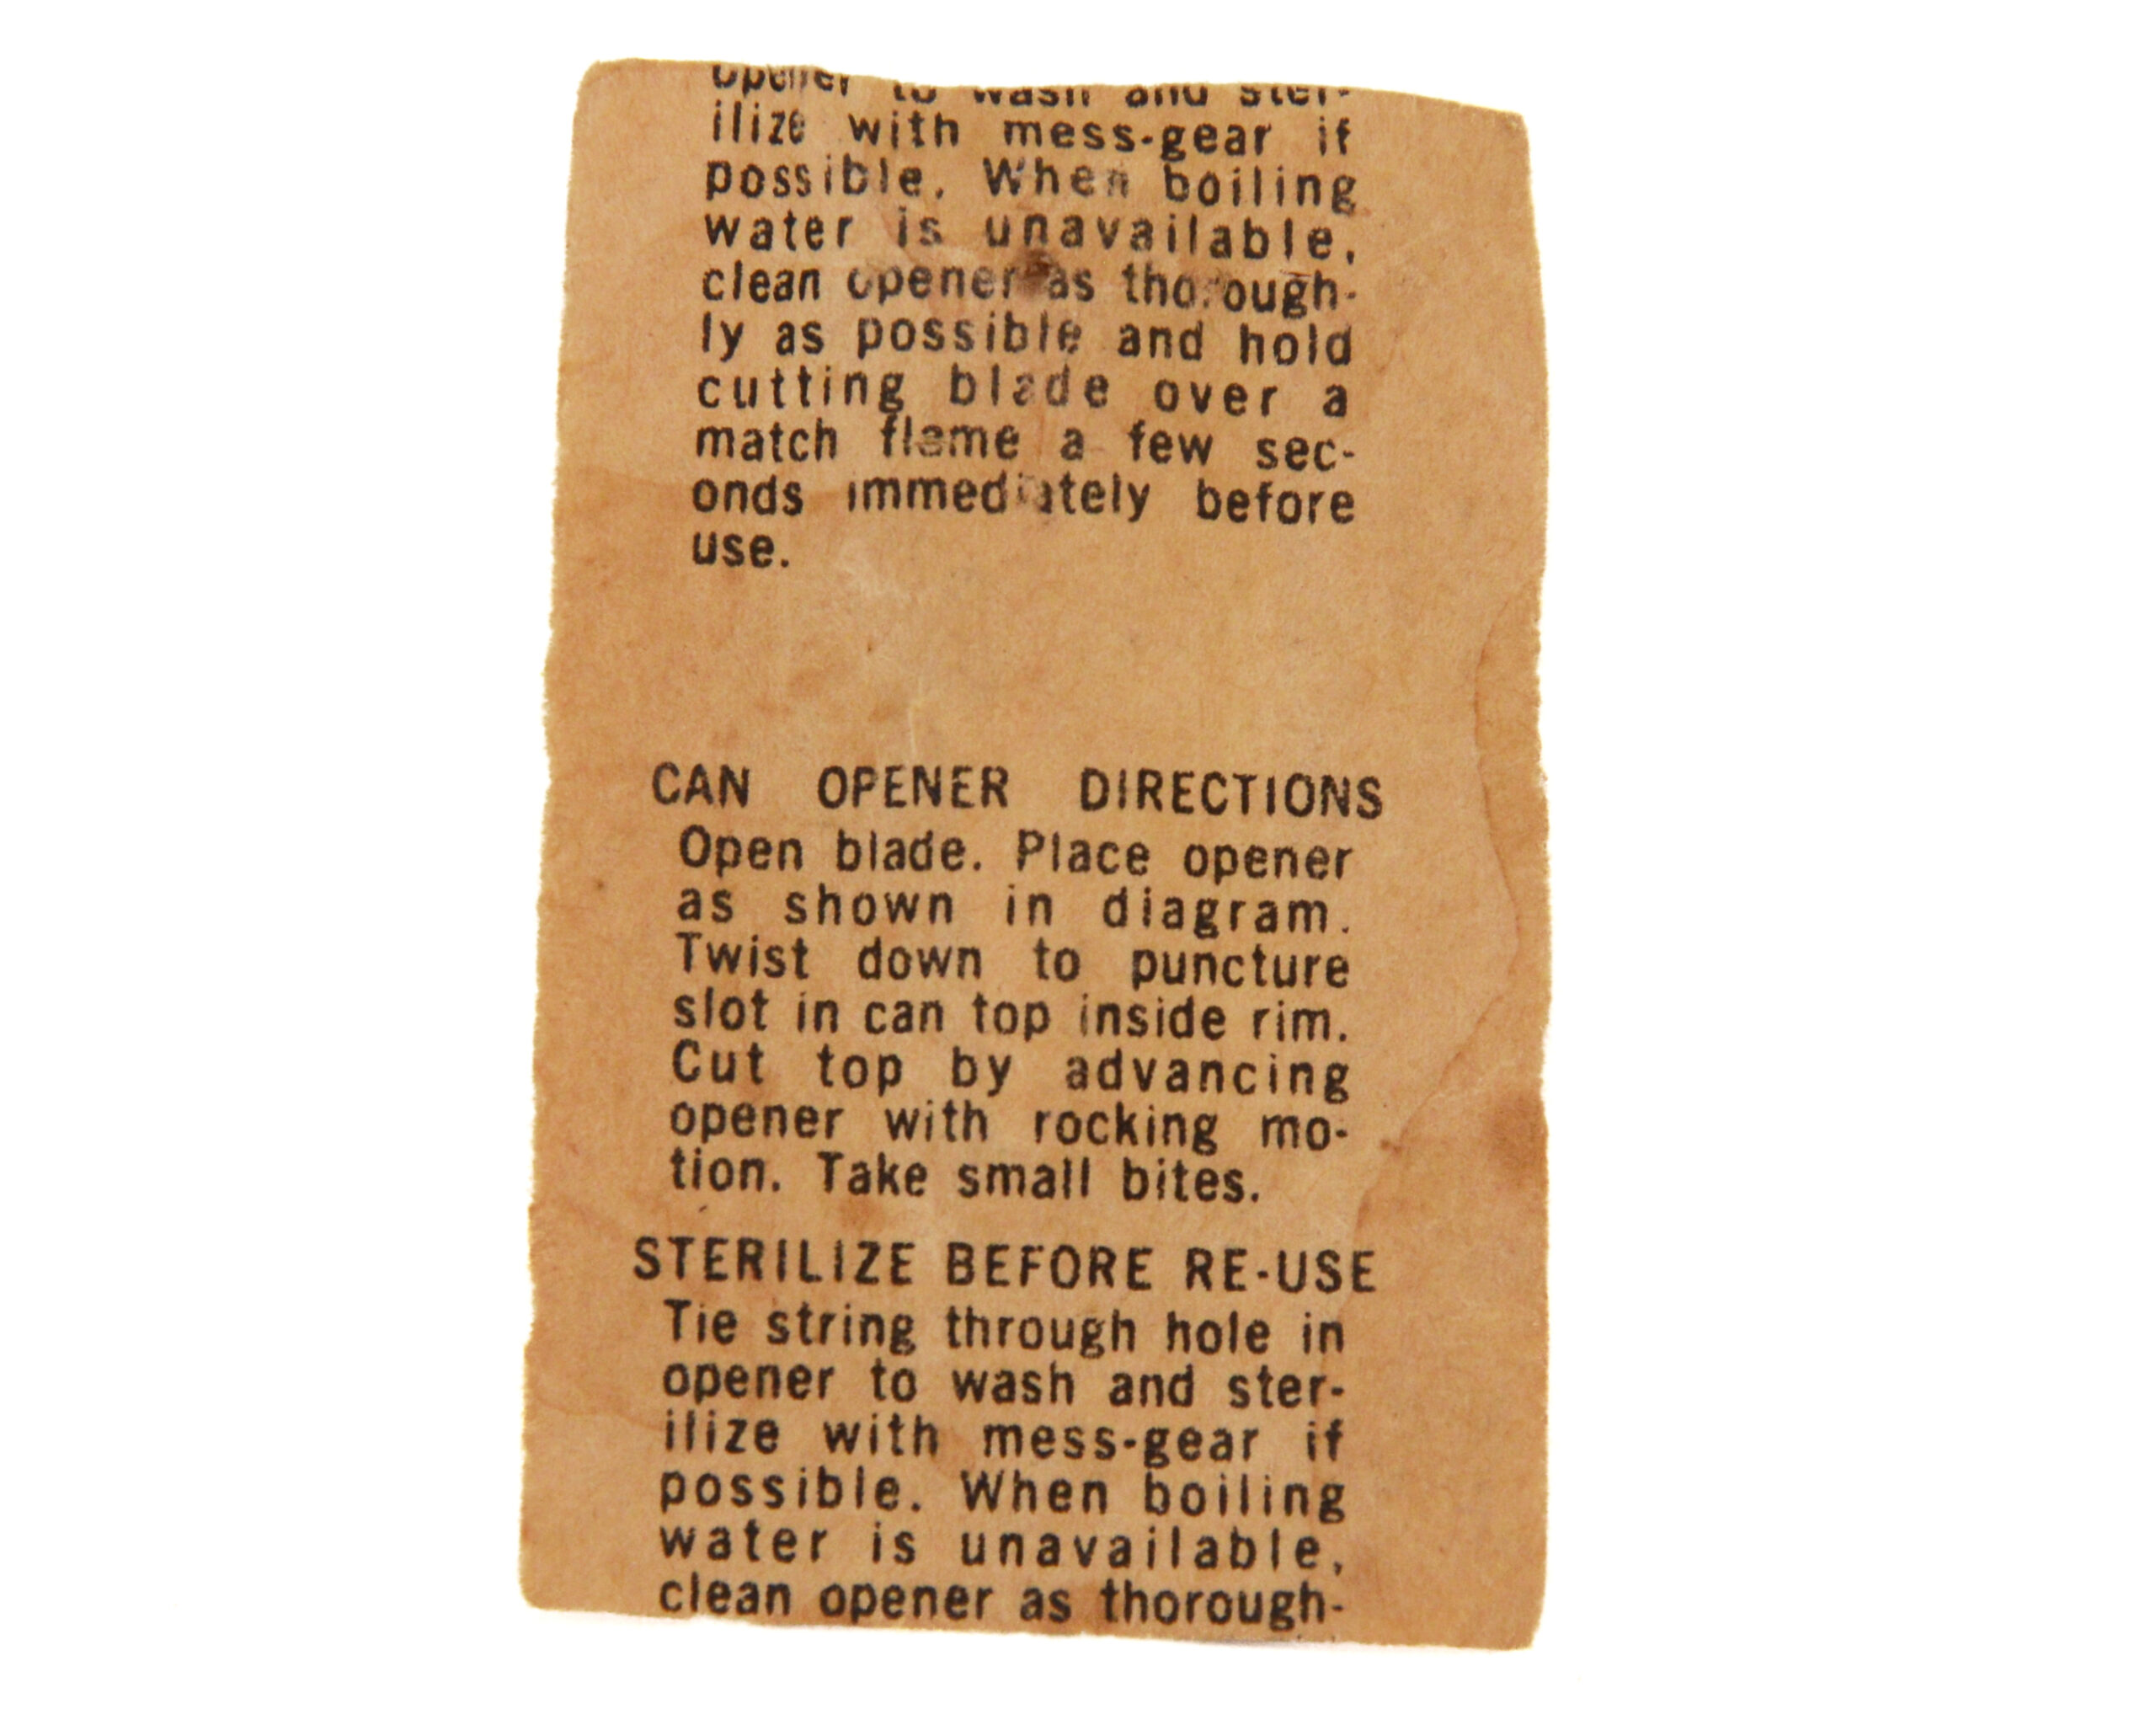 opener to wash and ster-
ilize with mess-gear if
possible. When boiling
water is unavailable,
clean opener as thorough-
ly as possible and hold
cutting blade over a
match flame a few sec-
onds immediately before
use.
CAN OPENER DIRECTIONS
Open blade. Place opener
as shown in diagram.
Twist down to puncture
slot in can top inside rim.
Cut top by advancing
opener with rocking mo-
tion. Take small bites.
STERILIZE BEFORE RE-USE
Tie string through hole in
opener to wash and ster-
ilize with mess-gear if
possible. When boiling
water is unavailable,
clean opener as thorough-